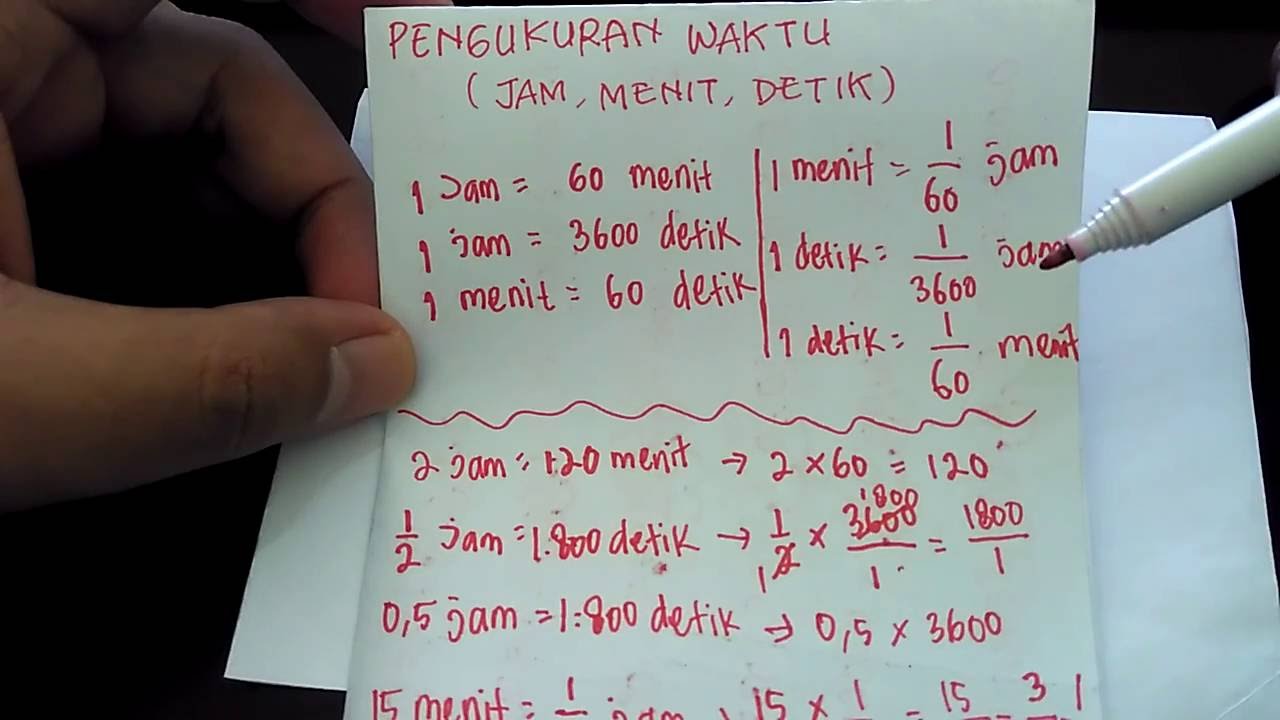 PENGUKURAN WAKTU
(JAM, MENIT, DETIK)
1 Jam = 60 menit
1 jam = 3600 detik
1 menit = 60 detik
1 menit = 1/60 jam
1 detik = 1/3600 jam
1 detik = 1/60 menit
2 jam = 120 menit → 2 × 60 = 120
1/2 jam = 1.800 detik → 1/2 1 × 3600/1 1800 = 1800/1
0,5 jam = 1.800 detik → 0,5 × 3600
15 menit = 1 jam 15 × 1 = 15 = 3 1